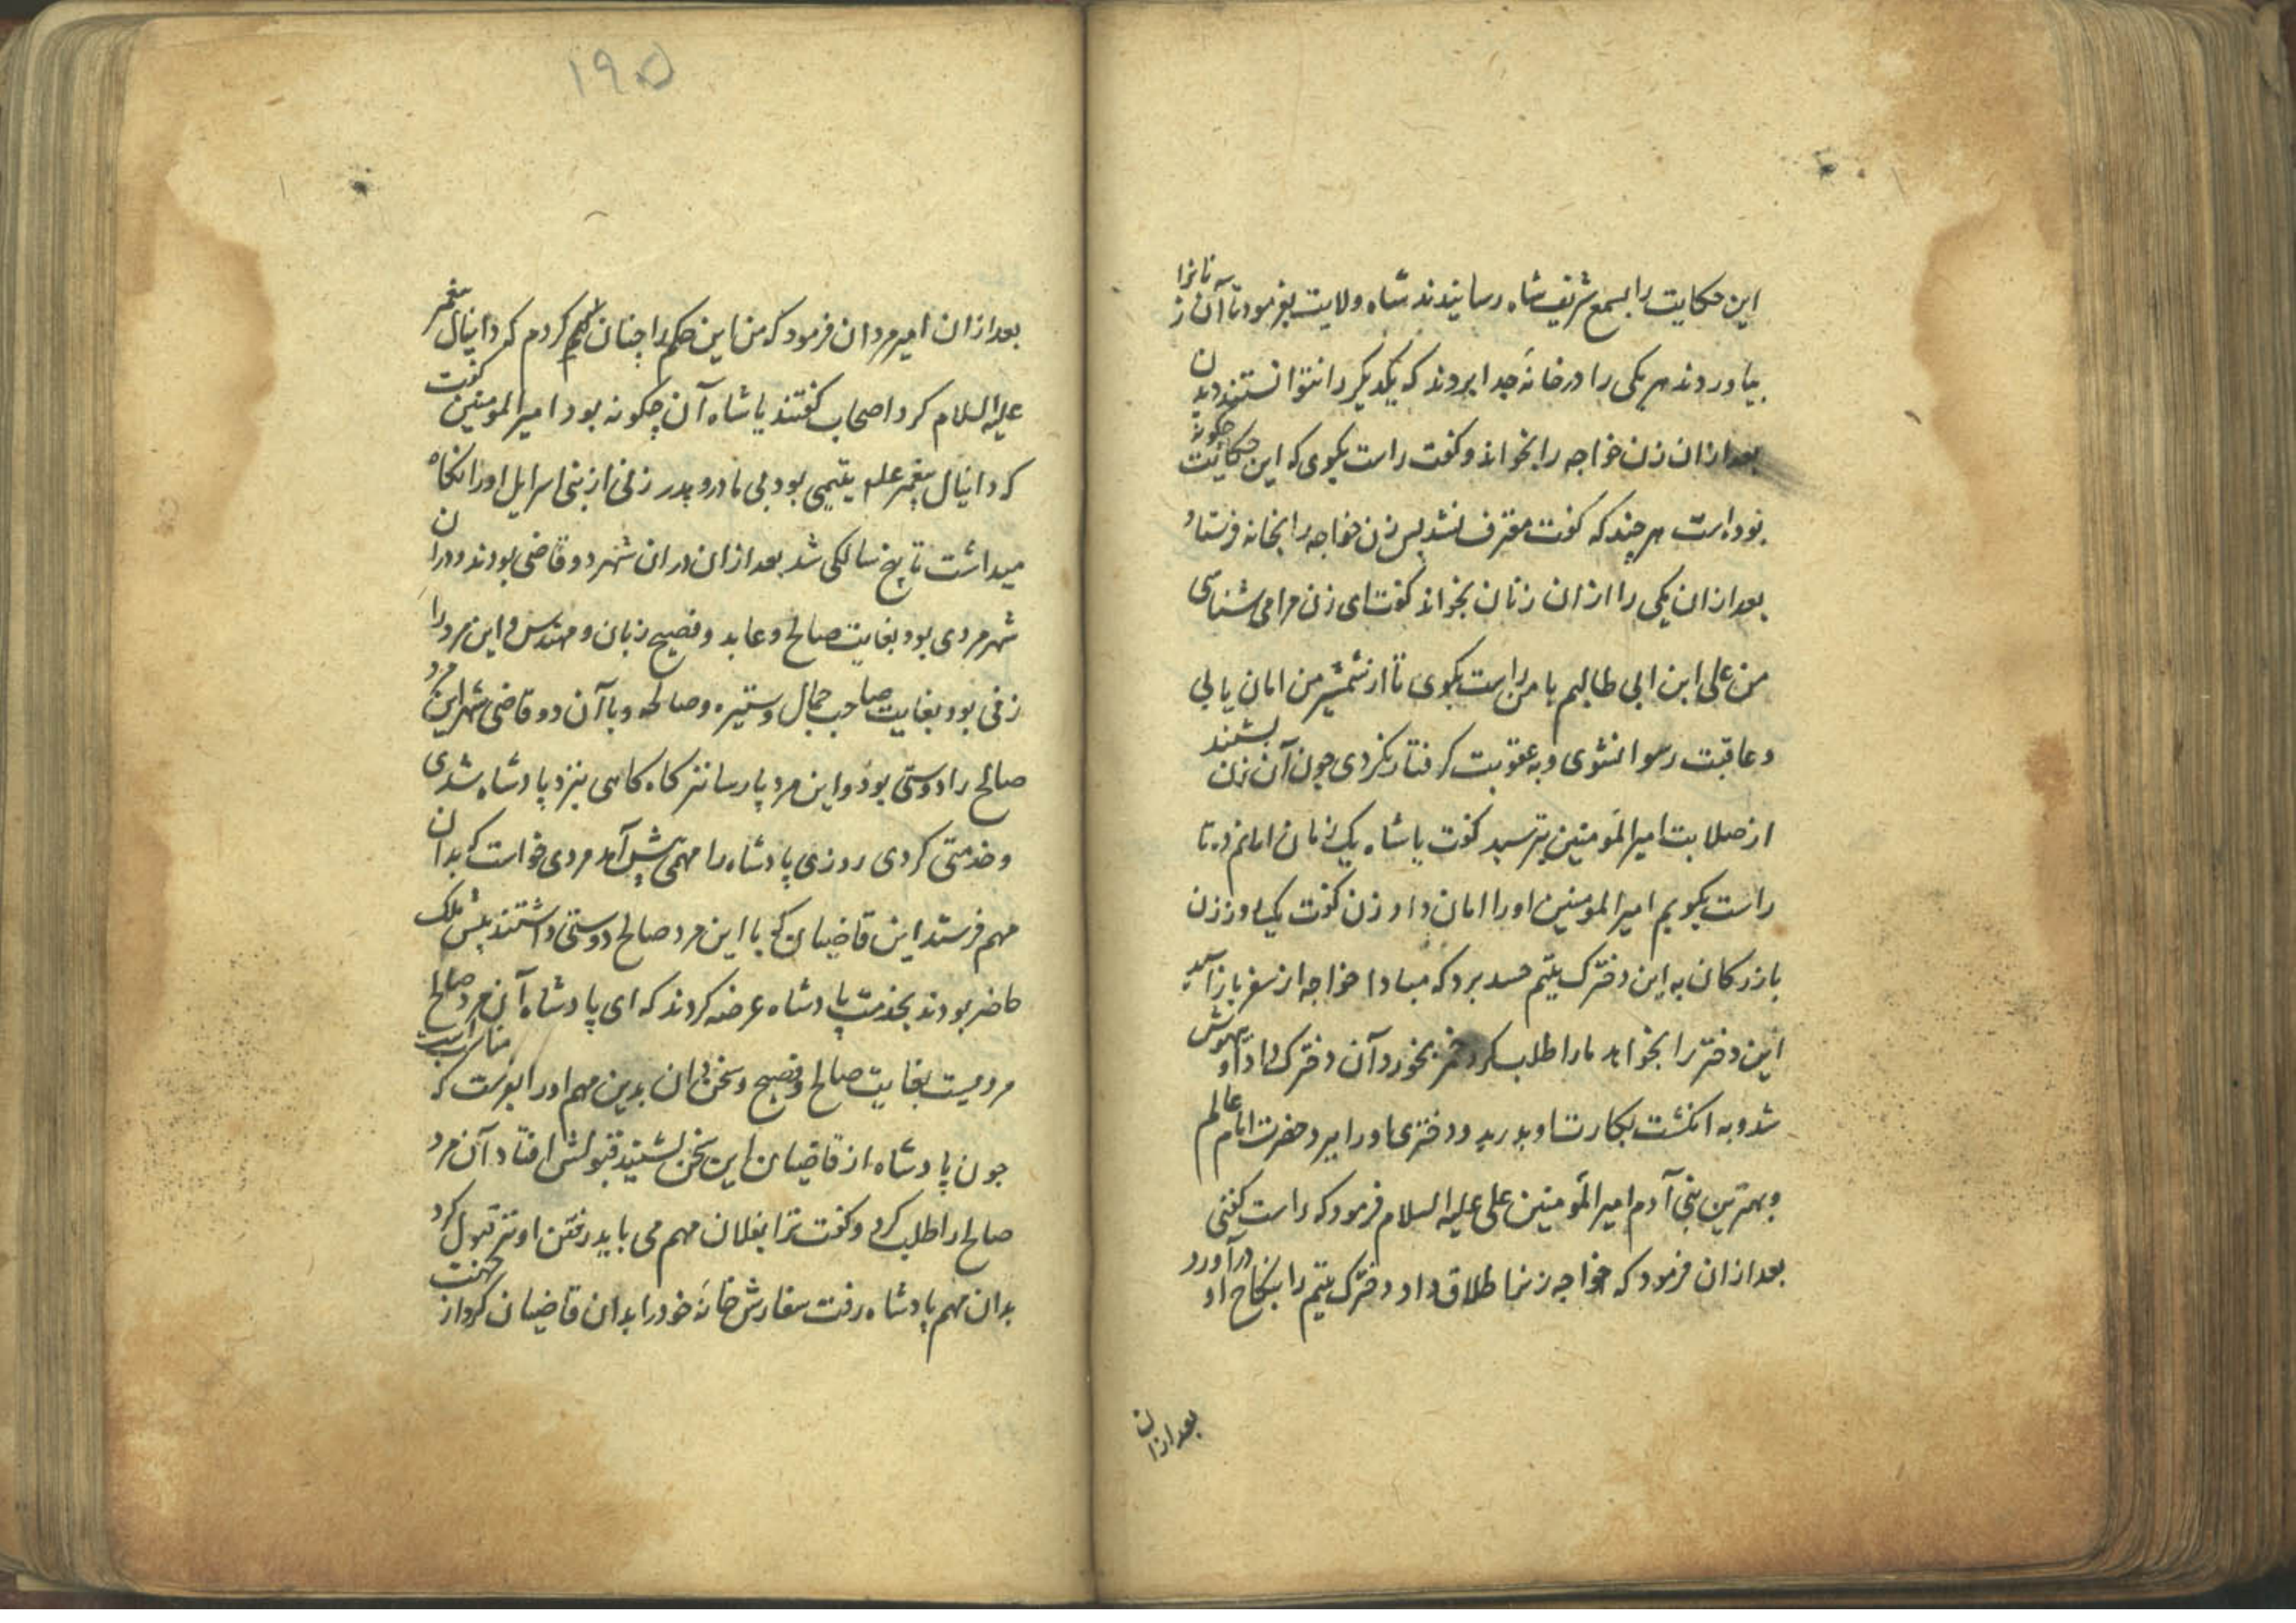 این حکایت را بسمع شریف شاه رسانیدند شاه ولایت بفرمود تا آن زنانرا
بیاوردند هر یکی را در خانهٔ جدا بردند که یکدیگر را نتوانستند دیدن
بعد ازان زن خواجه را بخواند و کفت راست بکوی که این حکایت چکونه
بوده است هر چند که کفت معترف نشد پس زن خواجه را بخانه فرستاد
بعد ازان یکی را ازان زنان بخواند کفت ای زن مرا می شناسی
من علی ابن ابی طالبم با من راست بکوی تا از شمشیر من امان یابی
و عاقبت رسوا نشوی و به عقوبت کرفتار نکردی چون آن زن بشنید
از صلابت امیرالمؤمنین بترسید کفت یا شاه یک زمان امانم ده تا
راست بکویم امیرالمومنین اورا امان داد زن کفت یک روز زن
بازرکان به این دخترک یتیم حسد برد که مبادا خواجه از سفر باز آید
این دختر را بخواهد مارا طلب کرد خمر بخورد آن دخترک داد او بیهوش
شد و به انکشت بکارت او بدرید و دختری اورا ببرد حضرت امام عالم
و بهترین بنی آدم امیرالمؤمنین علی علیه السلام فرمود که راست کفتی
بعد ازان فرمود که خواجه زنرا طلاق داد و دخترک یتیم را بنکاح او درآورد
بعد ازان
١٩۵
بعد ازان امیر مردان فرمود که من این حکم را چنان حکم کردم که دانیال پیغمبر
علیه السلام کرد اصحاب کفتند یا شاه آن چکونه بود امیرالمومنین کفت
که دانیال پیغمبر علیه یتیمی بود بی مادر و پدر زنی از بنی اسرایل اورا نکاه
میداشت تا پنج سالکی شد بعد ازان دران شهر دو قاضی بودند و دران
شهر مردی بود بغایت صالح و عابد و فصیح زبان و مهندس و این مرد را
زنی بود بغایت صاحب جمال و ستیره و صالحه و با آن دو قاضی شهر این مرد
صالح را دوستی بود و این مرد پارسا نیز کاه کاهی بنزد پادشاه شدی
و خدمتی کردی روزی پادشاه را مهمی پیش آمد مردی خواست که بدان
مهم فرستد این قاضیان که با این مرد صالح دوستی داشتند پیش ملک
حاضر بودند بخدمت پادشاه عرضه کردند که ای پادشاه آن مرد صالح
مردیست بغایت صالح و فصیح و سخن دان بدین مهم اورا بفرست که مناسب است
چون پادشاه از قاضیان این سخن بشنید قبولش افتاد آن مرد
صالح را طلب کرد و کفت ترا بفلان مهم می باید رفتن او نیز قبول کرد
بدان مهم پادشاه رفت سفارش خانهٔ خود را بدان قاضیان کرد از